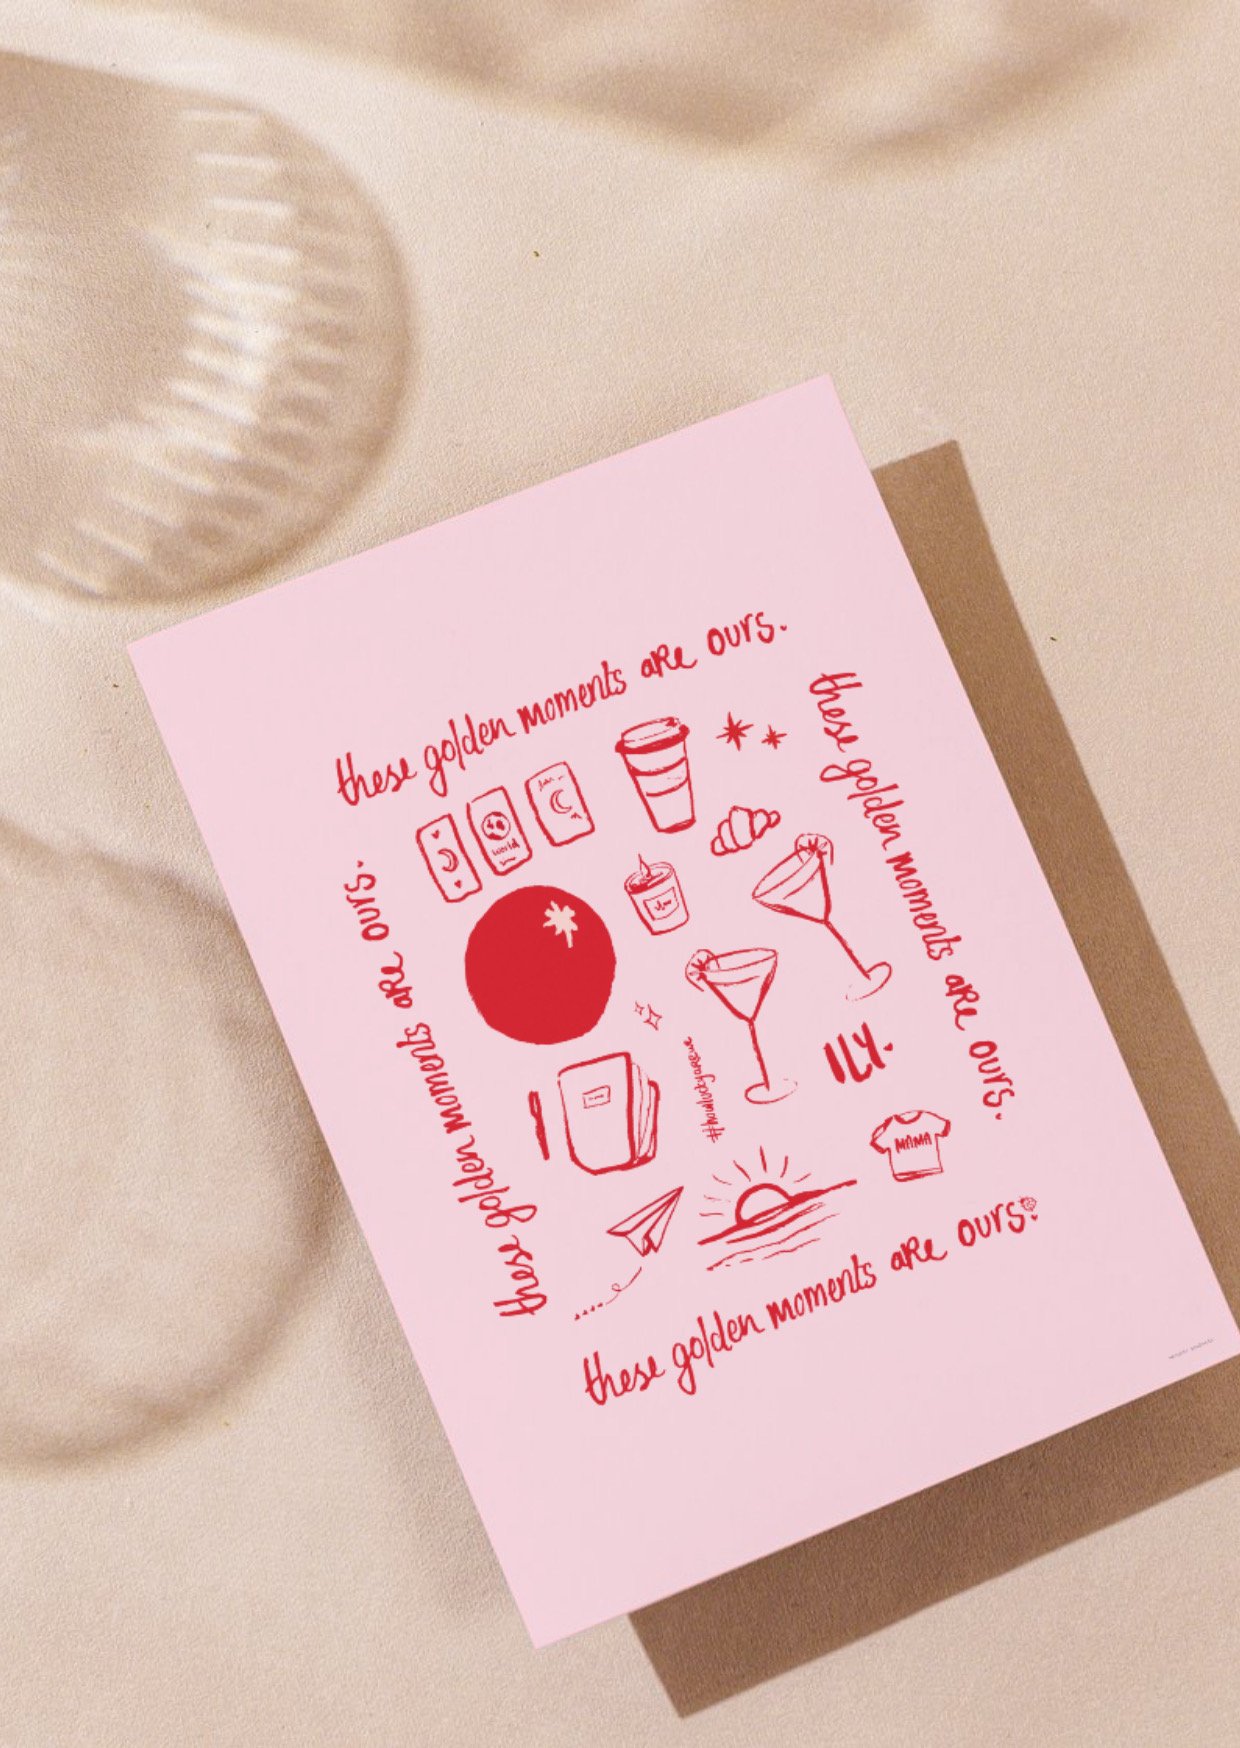 these golden moments are ours.
these golden moments are ours.
these golden moments are ours.
world
#howluckyarewe
ILY.
MAMA
these golden moments are ours.